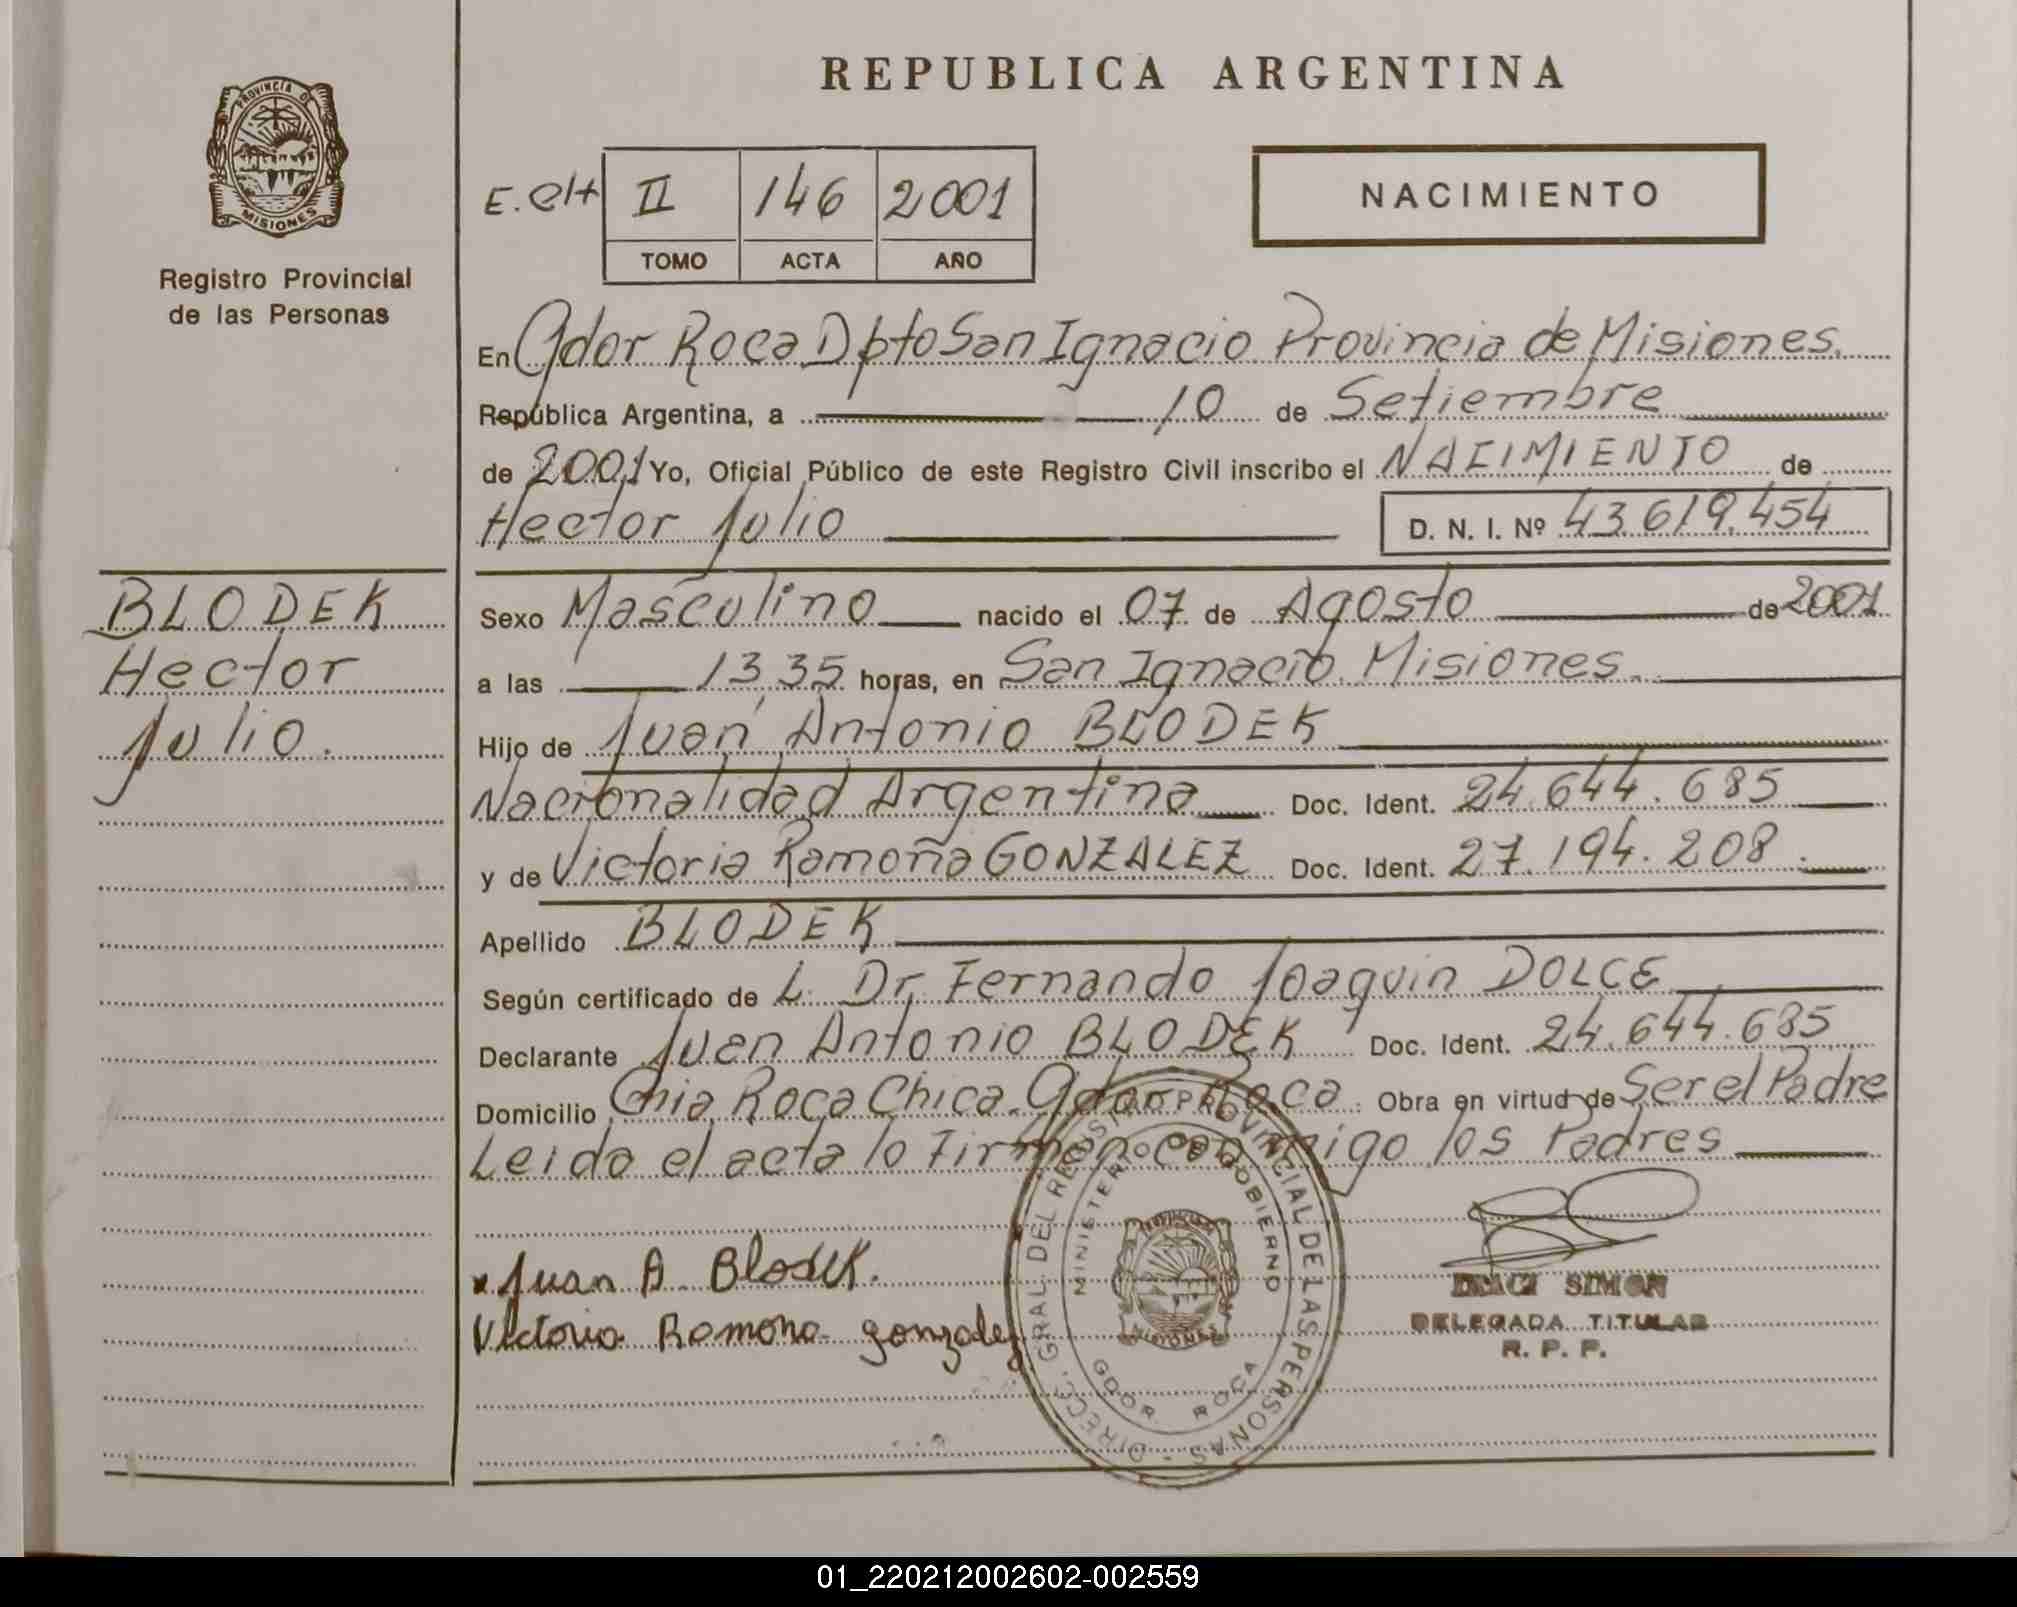 REPUBLICA ARGENTINA
PROVINCIA DE
MISIONES
Registro Provincial
de las Personas
E. elt
II 146 2001
TOMO ACTA AÑO
NACIMIENTO
En Gdor Roca Dpto San Ignacio Provincia de Misiones.
República Argentina, a 10 de Setiembre
de 2001 Yo, Oficial Público de este Registro Civil inscribo el NACIMIENTO de
Hector Julio D. N. I. Nº 43.619.454
BLODEK
Hector
Julio.
Sexo Masculino nacido el 07 de Agosto de 2001
a las 13,35 horas, en San Ignacio. Misiones.
Hijo de Juan Antonio BLODEK
Nacionalidad Argentina Doc. Ident. 24.644.685
y de Victoria Ramona GONZALEZ Doc. Ident. 27.194.208.
Apellido BLODEK
Según certificado de L. Dr. Fernando Joaquin DOLCE
Declarante Juan Antonio BLODEK Doc. Ident. 24.644.685
Domicilio Cnia Roca Chica. Gdor Roca. Obra en virtud de Ser el Padre
Leida el acta lo Firman conmigo los Padres
x Juan A. Blodek.
Victoria Ramona gonzalez
DIRECC. GRAL. DEL REGISTRO PROVINCIAL DE LAS PERSONAS -
MINISTERIO DE GOBIERNO
PROVINCIA DE
MISIONES
GDOR ROCA
SIMON
DELEGADA TITULAR
R. P. P.
01_220212002602-002559